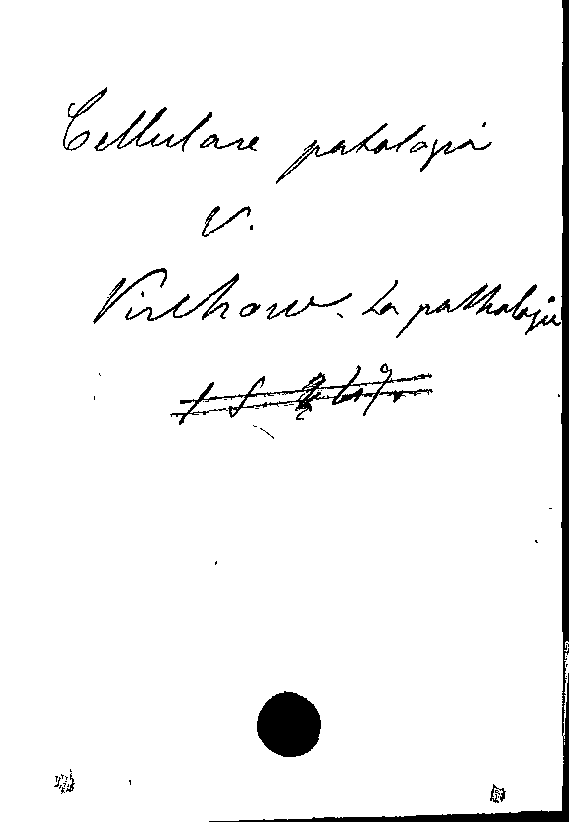 Cellulare patologia
v.
Virchow. La pathologie